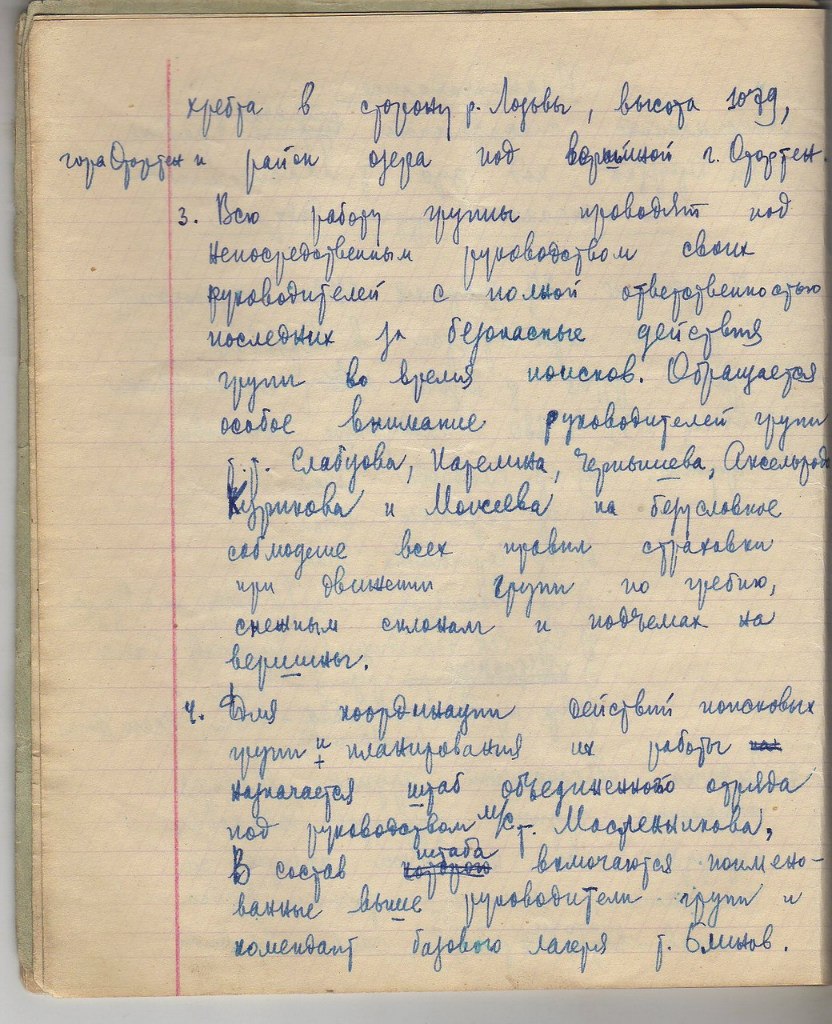 хребта в сторону р. Лозьвы, высота 1079,
гора Отортен и район озера под вершиной г. Отортен.
3. Всю работу группы проводят под
непосредственным руководством своих
руководителей с полной ответственностью
последних за безопасные действия
групп во время поисков. Обращается
особое внимание руководителей групп
т.т. Слабцова, Карелина, Чернышева, Аксельрода
Курикова и Моисеева на безусловное
соблюдение всех правил страховки
при движении групп по гребню,
снежным склонам и подъемах на
вершины.
4. Для координации действий поисковых
групп и планирования их работы
назначается штаб объединенного отряда
под руководством м/с т. Масленникова,
В состав которого штаба включаются поимено-
ванные выше руководители групп и
комендант базового лагеря т. Блинов.